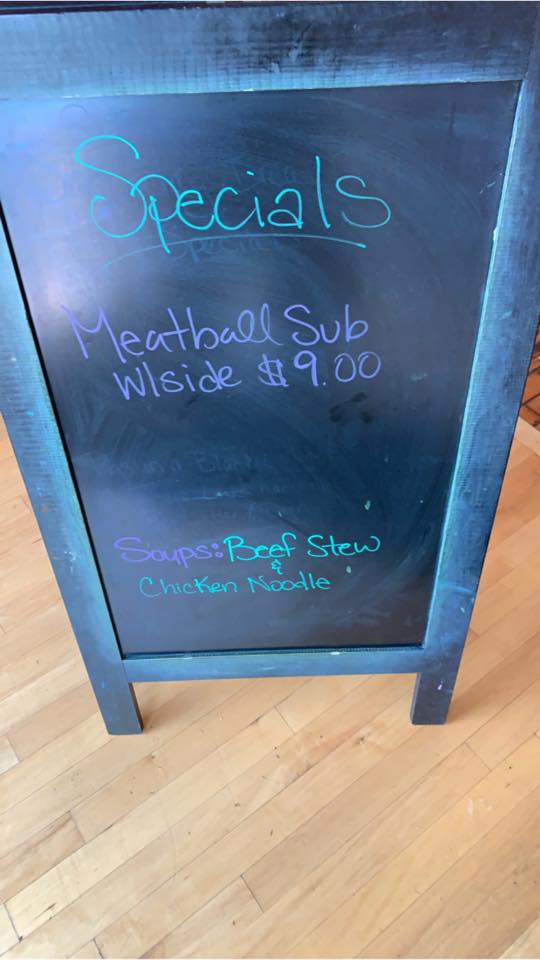 Specials
Meatball Sub
w/side $9.00
Soups: Beef Stew
&
Chicken Noodle